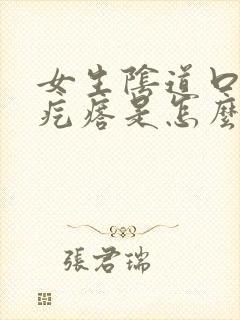 女生陰道口
疙瘩是怎麼
張君瑞